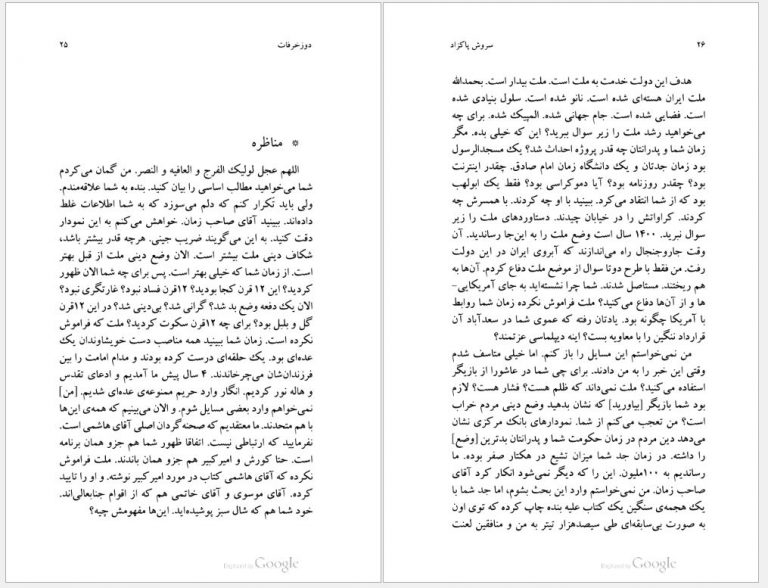 ۲۵
دوزخرفات
* مناظره
اللهم عجل لولیک الفرج و العافیه و النصر. من گمان می‌کردم
شما می‌خواهید مطالب اساسی را بیان کنید. بنده به شما علاقه‌مندم.
ولی باید تَکرار کنم که دلم می‌سوزد که به شما اطلاعات غلط
داده‌اند. ببینید آقای صاحب زمان. خواهش می‌کنم به این نمودار
دقت کنید. به این می‌گویند ضریب جینی. هرچه قدر بیشتر باشد،
شکاف دینی ملت بیشتر است. الان وضع دینی ملت از قبل بهتر
است. از زمان شما که خیلی بهتر است. پس برای چه شما الان ظهور
کردید؟ این ۱۲ قرن کجا بودید؟ ۱۲قرن فساد نبود؟ غارتگری نبود؟
الان یک دفعه وضع بد شد؟ گرانی شد؟ بی‌دینی شد؟ در این ۱۲قرن
گل و بلبل بود؟ برای چه ۱۲قرن سکوت کردید؟ ملت که فراموش
نکرده است. زمان شما ببینید همه مناصب دست خویشاوندان یک
عده‌ای بود. یک حلقه‌ای درست کرده بودند و مدام امامت را بین
فرزندان‌شان می‌چرخاندند. ۴ سال پیش ما آمدیم و ادعای تقدس
و هاله نور کردیم. انگار وارد حریم ممنوعه‌ی عده‌ای شدیم. [من]
نمی‌خواهم وارد بعضی مسایل شوم. و الان می‌بینیم که همه‌ی این‌ها
با هم متحدند. ما معتقدیم که صحنه‌گردان اصلی آقای هاشمی است.
نفرمایید که ارتباطی نیست. اتفاقا ظهور شما هم جزو همان برنامه
است. حتا کورش و امیرکبیر هم جزو همان باندند. ملت فراموش
نکرده که آقای هاشمی کتاب در مورد امیرکبیر نوشته. و او را تایید
کرده. آقای موسوی و آقای خاتمی هم که از اقوام جنابعالی‌اند.
خود شما هم که شال سبز پوشیده‌اید. این‌ها مفهومش چیه؟
Digitized by Google
سروش پاکزاد
۲۶
هدف این دولت خدمت به ملت است. ملت بیدار است. بحمدالله
ملت ایران هسته‌ای شده است. نانو شده است. سلول بنیادی شده
است. فضایی شده است. جام جهانی شده. المپیک شده. برای چه
می‌خواهید رشد ملت را زیر سوال ببرید؟ این که خیلی بده. مگر
زمان شما و پدرانتان چه قدر پروژه احداث شد؟ یک مسجدالرسول
بود زمان جدتان و یک دانشگاه زمان امام صادق. چقدر اینترنت
بود؟ چقدر روزنامه بود؟ آیا دموکراسی بود؟ فقط یک ابولهب
بود که از شما انتقاد می‌کرد. ببینید با او چه کردند. با همسرش چه
کردند. کراواتش را در خیابان چیدند. دستاوردهای ملت را زیر
سوال نبرید. ۱۴۰۰ سال است وضع ملت را به این‌جا رساندید. آن
وقت جاروجنجال راه می‌اندازند که آبروی ایران در این دولت
رفت. من فقط با طرح دوتا سوال از موضع ملت دفاع کردم. آن‌ها به
هم ریختند. مستاصل شدند. شما چرا نشسته‌اید به جای آمریکایی-
ها و از آن‌ها دفاع می‌کنید؟ ملت فراموش نکرده زمان شما روابط
با آمریکا چگونه بود. یادتان رفته که عموی شما در سعدآباد آن
قرارداد ننگین را با معاویه بست؟ اینه دیپلماسی عزتمند؟
من نمی‌خواستم این مسایل را باز کنم. اما خیلی متاسف شدم
وقتی این خبر را به من دادند. برای چی شما در عاشورا از بازیگر
استفاده می‌کنید؟ ملت نمی‌داند که ظلم هست؟ فشار هست؟ لازم
بود شما بازیگر [بیاورید] که نشان بدهید وضع دینی مردم خراب
است؟ من تعجب می‌کنم از شما. نمودارهای بانک مرکزی نشان
می‌دهد دین مردم در زمان حکومت شما و پدرانتان بدترین [وضع]
را داشته. در زمان جد شما میزان تشیع در هکتار صفر بوده. ما
رساندیم به ۱۰۰ملیون. این را که دیگر نمی‌شود انکار کرد آقای
صاحب زمان. من نمی‌خواستم وارد این بحث بشوم، اما جد شما با
یک هجمه‌ی سنگین یک کتاب علیه بنده چاپ کرده که توی اون
به صورت بی‌سابقه‌ای طی سیصدهزار تیتر به من و منافقین لعنت
Digitized by Google